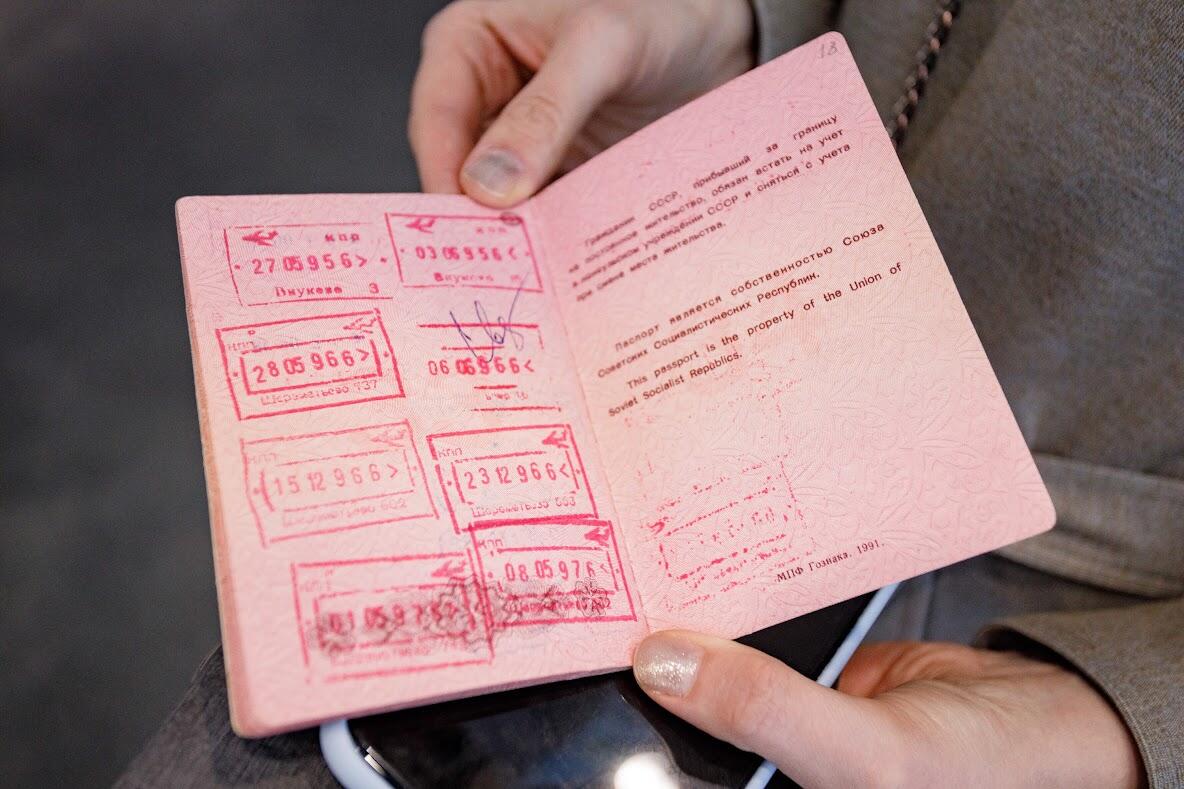 КПП
27 05 95 6 >
Внуково 3
КПП
03 06 95 6 <
Внуково
КПП
28 05 96 6 >
Шереметьево 737
06 06 96 6 <
КПП
15 12 96 6 >
Шереметьево 602
КПП
23 12 96 6 <
Шереметьево 663
КПП
01 05 97
КПП
08 05 97 6 <
Шереметьево
13
Гражданин СССР, прибывший за границу
на постоянное жительство, обязан встать на учет
в консульском учреждении СССР и сняться с учета
при смене места жительства.
Паспорт является собственностью Союза
Советских Социалистических Республик.
This passport is the property of the Union of
Soviet Socialist Republics.
МПФ Гознака. 1991.